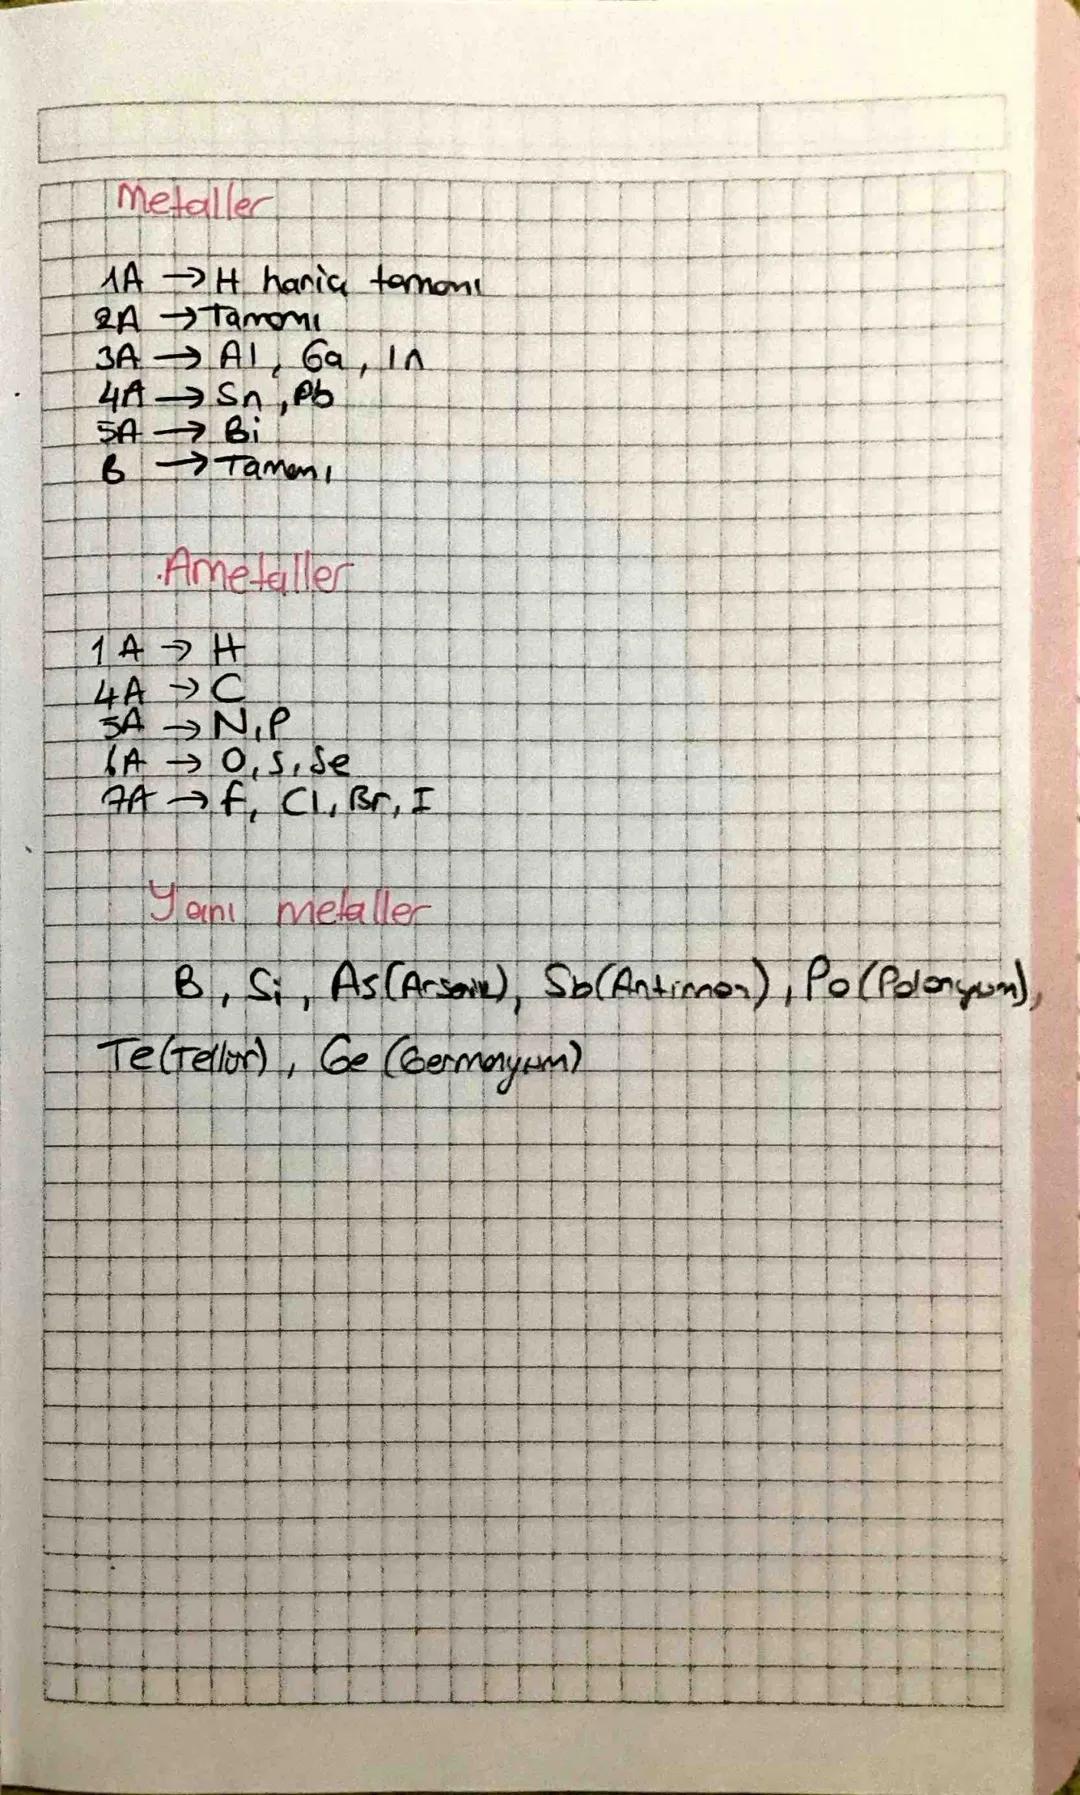 Metaller
1A → H hariç tamamı
2A → Tamamı
3A → Al, Ga, In
4A → Sn, Pb
5A → Bi
B → Tamamı
Ametaller
1A → H
4A → C
5A → N, P
6A → O, S, Se
7A → f, Cl, Br, I
Yarı metaller
B, Si, As(Arsenik), Sb(Antimon), Po(Polonyum),
Te(Tellür), Ge (Germanyum)